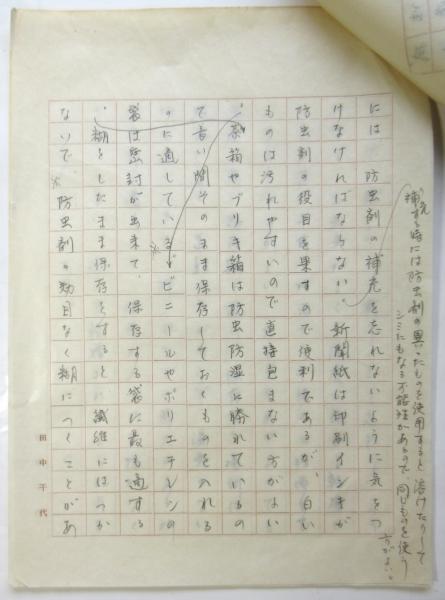 補充する時には防虫剤の異ったものを使用すると溶けたりして
シミにもなる可能性があるので同じものを使う
方がよい。
には防虫剤の補充を忘れないように気をつ
けなければならない。新聞紙は印刷インキが
防虫剤の役目を果すので便利であるが、白い
ものは汚れやすいので直接包まない方がよい
。茶箱やブリキ箱は防虫防湿に勝れているの
で言い間そのまま保存しておくものを入れる
のに適している。ビニールやポリエチレンの
袋は密封が出来て、保存する袋に最も適する
。糊をしたまま保存をすると繊維にはつか
ないで※防虫剤の効目なく糊につくことがあ
田中千代